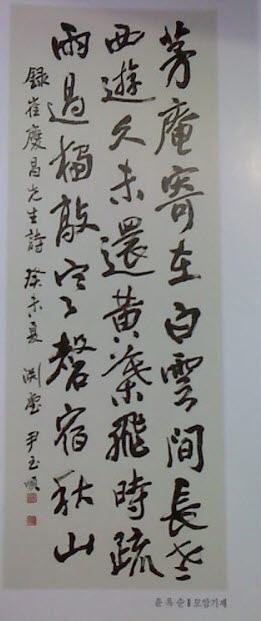 茅庵寄在白雲間長老
西遊久未還黃葉飛時疏
雨過獨敲寒磬宿秋山
錄崔慶昌先生詩 癸未夏 尹玉順
윤 옥 순 ┃ 모암기재